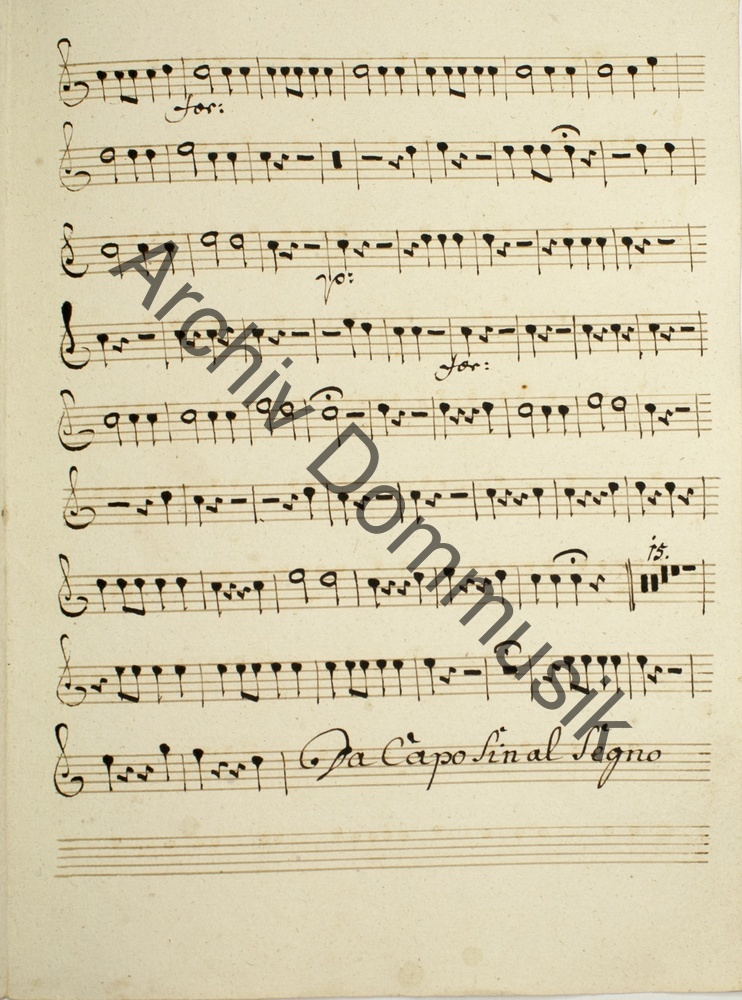 for:
p:
for:
15.
Da Capo Sin al Segno
Archiv Dommusik